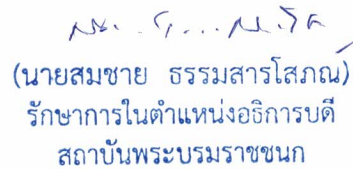 (นายสมชาย ธรรมสารโสภณ)
รักษาการในตำแหน่งอธิการบดี
สถาบันพระบรมราชชนก